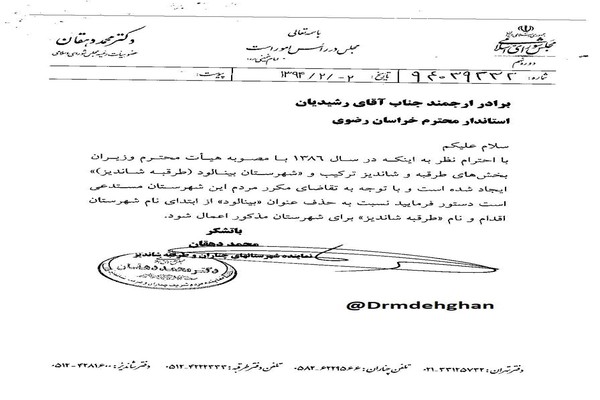 باسمه‌تعالی
مجلس در رأس امور است
دکتر محمد دهقان
عضو هیأت رئیسه مجلس شورای اسلامی
مجلس شورای اسلامی
دوره نهم
شماره: ۹۴۰۳۹۳۳۲ تاریخ: ۱۳۹۴/۲/۰۲ پیوست:
برادر ارجمند جناب آقای رشیدیان
استاندار محترم خراسان رضوی
سلام علیکم
با احترام نظر به اینکه در سال ۱۳۸۶ با مصوبه هیأت محترم وزیران
بخش‌های طرقبه و شاندیز ترکیب و «شهرستان بینالود (طرقبه شاندیز)»
ایجاد شده است و با توجه به تقاضای مکرر مردم این شهرستان مستدعی
است دستور فرمایید نسبت به حذف عنوان «بینالود» از ابتدای نام شهرستان
اقدام و نام «طرقبه شاندیز» برای شهرستان مذکور اعمال شود.
باتشکر
محمد دهقان
نماینده شهرستانهای چناران و طرقبه شاندیز
دکتر محمد دهقان
@Drmdehghan
دفتر تهران: ۳۳۱۲۵۷۳۲-۰۲۱ تلفن چناران: ۶۲۲۹۵۶۶-۰۵۸۲ تلفن دفتر طرقبه: ۴۲۲۲۳۳۳-۰۵۱۲ دفتر شاندیز: ۴۲۸۱۶۰۰-۰۵۱۲